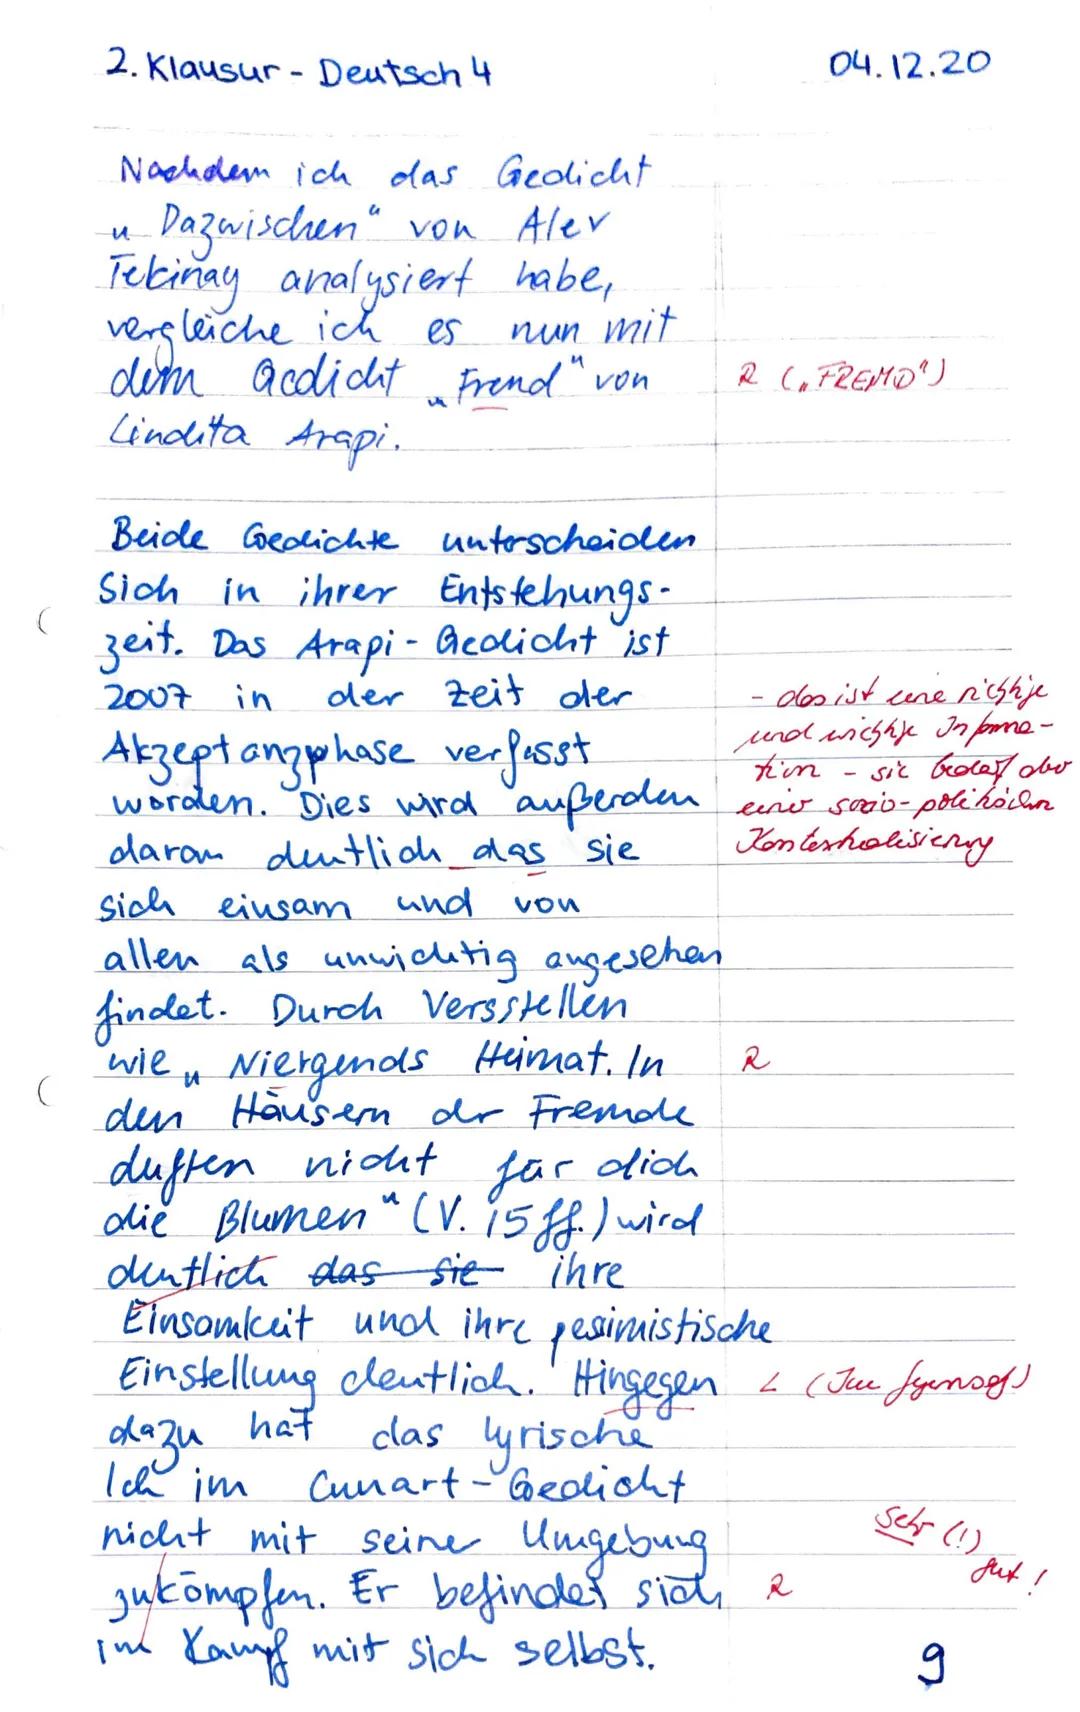 2. Klausur - Deutsch 4 04.12.20
Nachdem ich das Gedicht
„Dazwischen“ von Alev
Tekinay analysiert habe,
vergleiche ich es nun mit
dem Gedicht „Frend“ von R („FREMD“)
Lindita Arapi.
Beide Gedichte unterscheiden
sich in ihrer Entstehungs-
zeit. Das Arapi-Gedicht ist
2007 in der Zeit der - das ist eine richtige
Akzeptanzphase verfasst und wichtige Informa-
worden. Dies wird außerdem tion - sie bedarf aber
daran deutlich das sie einer sozio-politischen
sich einsam und von Kontextualisierung
allen als unwichtig angesehen
findet. Durch Versstellen
wie „Niergends Heimat. In R
den Häusern der Fremde
duften nicht für dich
die Blumen“ (V. 15 ff.) wird
deutlich das sie ihre
Einsamkeit und ihre pesimistische
Einstellung deutlich. Hingegen L (Im Gegensatz)
dazu hat das lyrische
Ich im Cunart-Gedicht
nicht mit seiner Umgebung Sehr (!)
zukämpfen. Er befindet sich R gut!
im Kampf mit sich selbst. 9